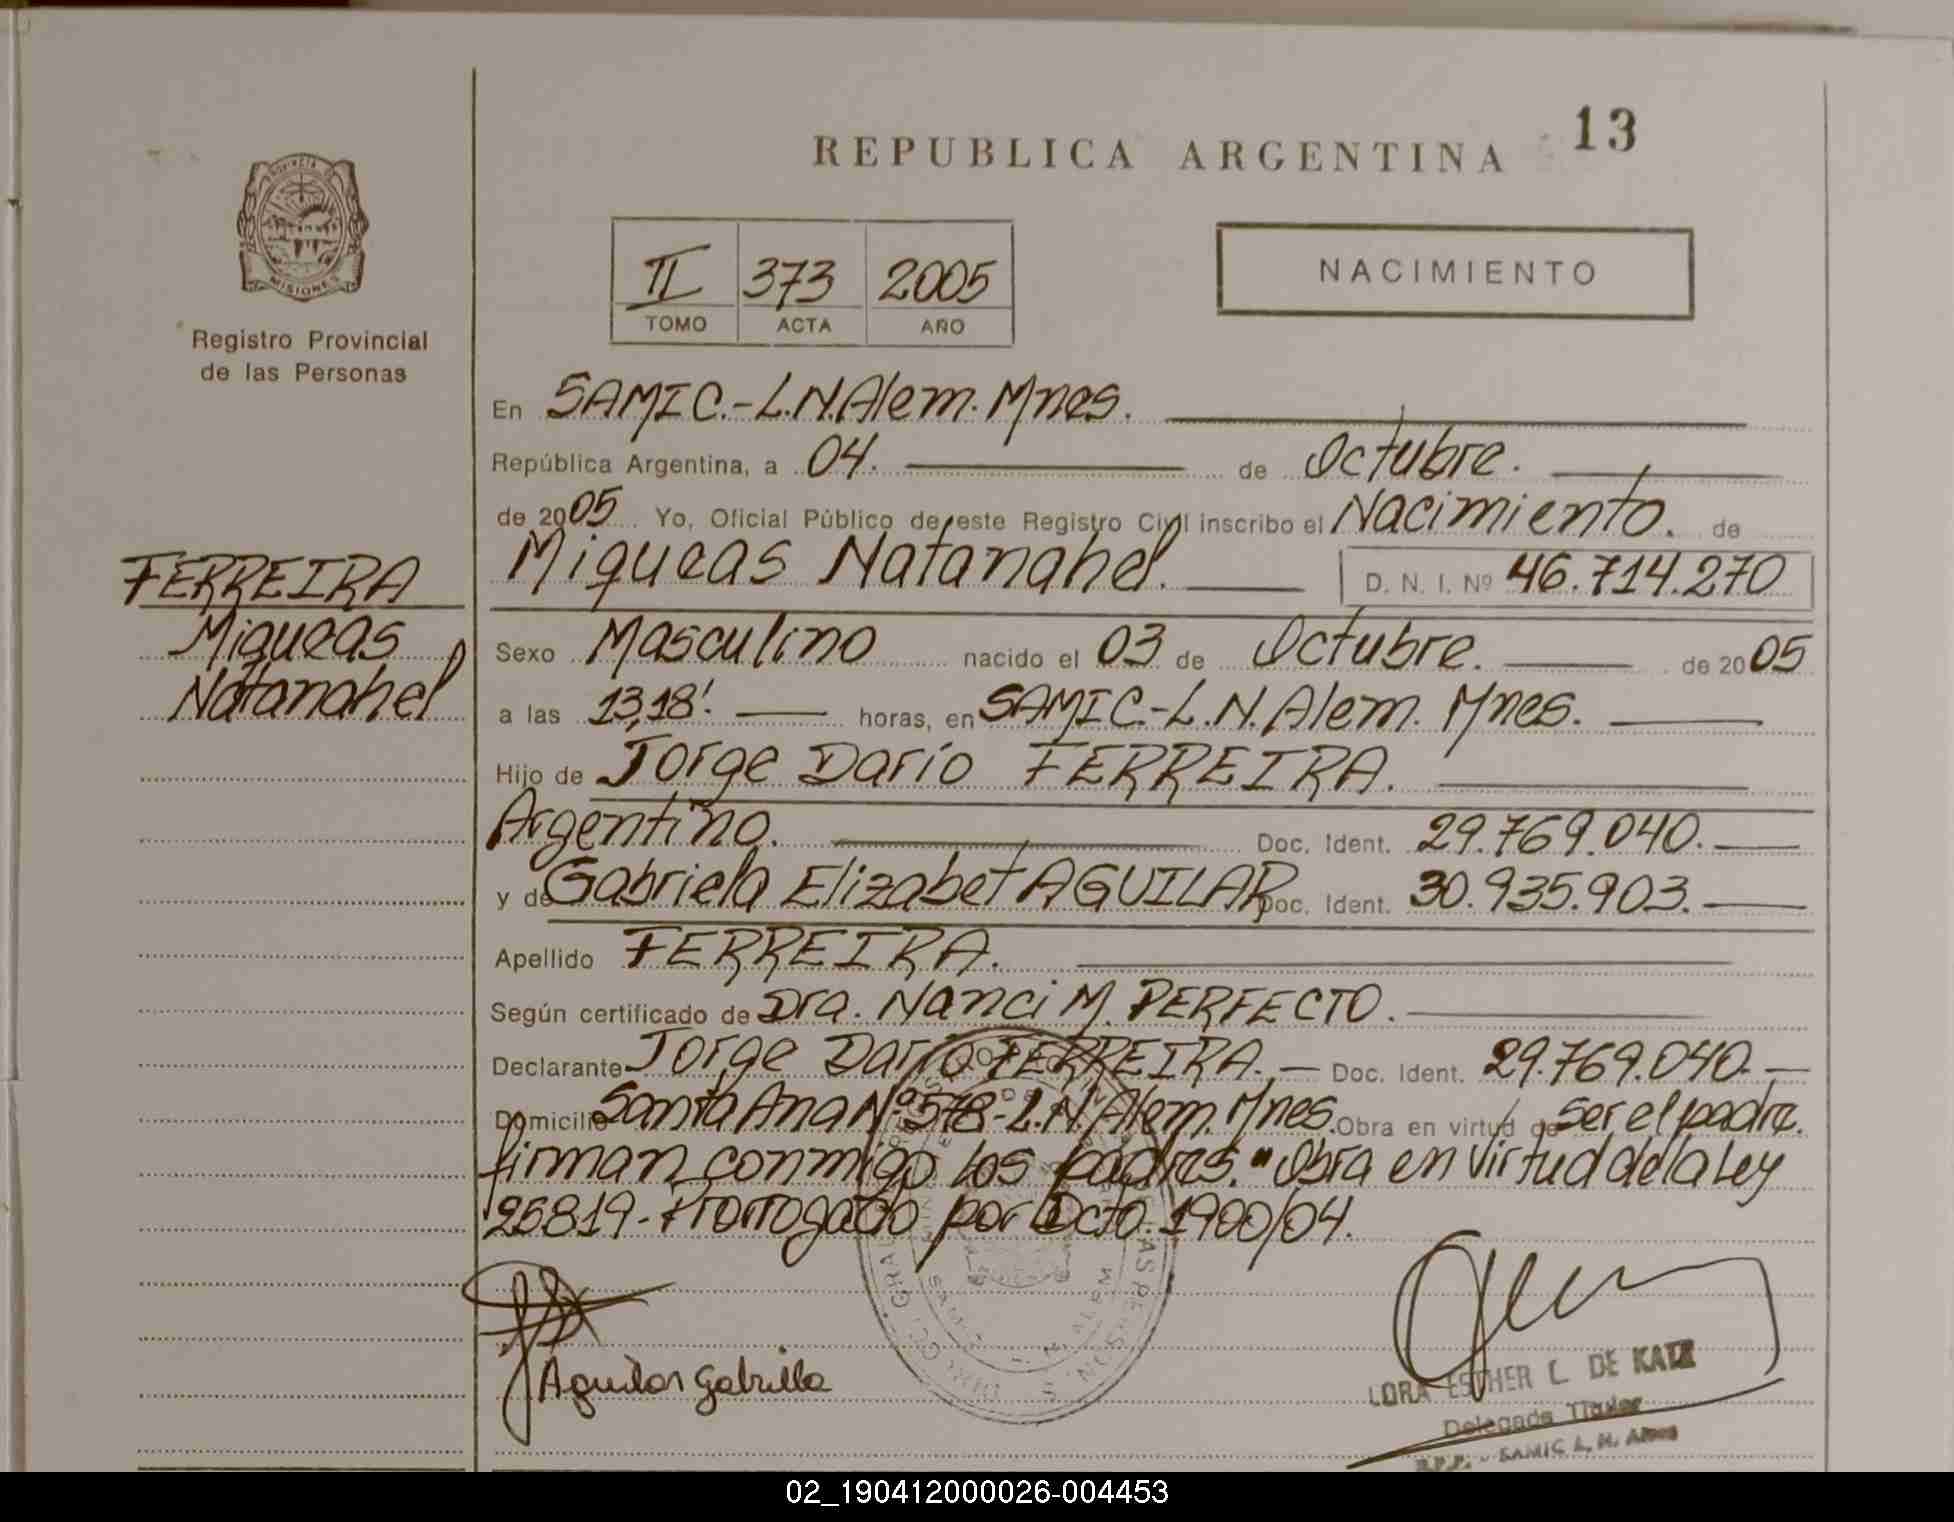 REPUBLICA ARGENTINA 13
PROVINCIA
MISIONES
Registro Provincial
de las Personas
II 373 2005
TOMO ACTA AÑO
NACIMIENTO
En SAMIC.-L.N.Alem. Mnes.
República Argentina, a 04. de Octubre.
de 2005 Yo, Oficial Público de este Registro Civil inscribo el Nacimiento. de
Miqueas Natanahel. D. N. I. Nº 46.714.270
FERREIRA
Miqueas
Natanahel
Sexo Masculino nacido el 03 de Octubre. de 2005
a las 13,18'. horas, en SAMIC.-L.N.Alem. Mnes.
Hijo de Jorge Darío FERREIRA.
Argentino. Doc. Ident. 29.769.040.
y de Gabriela Elizabet AGUILAR Doc. Ident. 30.935.903.
Apellido FERREIRA.
Según certificado de Dra. Nanci M. PERFECTO.
Declarante Jorge Darío FERREIRA.- Doc. Ident. 29.769.040.-
Domicilio Santa Ana Nº 578-L.N.Alem. Mnes. Obra en virtud de ser el padre.
firman conmigo los padres." Obra en virtud de la Ley
25819-Prorrogado por Dcto. 1900/04.
Aguilar Gabriela
LORA ESTHER L. DE KATZ
Delegada Titular
R.P.P. - SAMIC L. N. Alem
02_190412000026-004453